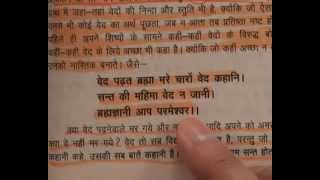 में जहां-तहां वेदों की निन्दा और स्तुति भी है, क्योंकि जो ऐसा
भी कोई वेद का अर्थ पूछता, जब न आता तब प्रतिष्ठा नष्ट
पहिले ही अपने शिष्यों के सामने कहीं-कहीं वेदों के विरुद्ध
कहीं-कहीं वेद के लिये अच्छा भी कहा है। क्योंकि जो कहीं अच्छा न
उनको नास्तिक बनाते। जैसे—
वेद पढ़त ब्रह्मा मरे चारों वेद कहानि।
सन्त की महिमा वेद न जानी।
ब्रह्मज्ञानी आप परमेश्वर।।
क्या वेद पढ़नेवाले मर गये और आदि अपने को
क्या वे नहीं मर गये? वेद तो सब परन्तु जो
कहानी कहे, उसकी सब बातें कहानी सन्त होता